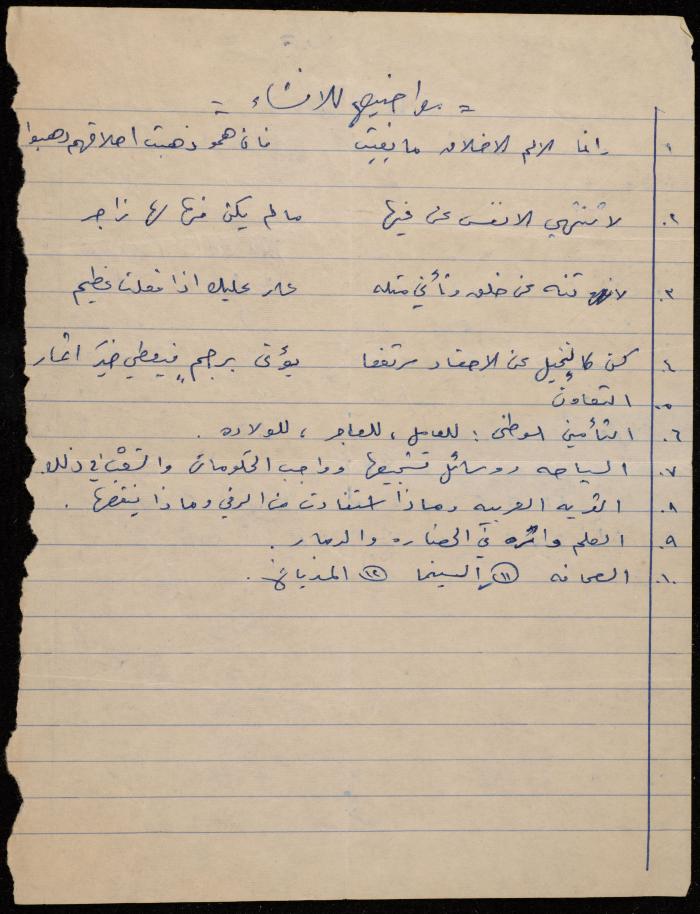 = مواضيع للانشاء =
١. وانما الامم الاخلاق ما بقيت فان همو ذهبت اخلاقهم ذهبوا
٢. لا تنتهي الانفس عن غيها ما لم يكن منها لها زاجر
٣. لا تنه عن خلق وتأتي مثله عار عليك اذا فعلت عظيم
٤. كن كالنخيل عن الاحقاد مرتفعا يؤتى برجم فيعطي خير اثمار
٥. التعاون
٦. التأمين الوطني : للعامل ، للعاجز ، للولاده .
٧. السياحه ووسائل تشجيعها وواجب الحكومات والشعب في ذلك .
٨. القريه العربيه وماذا استفادت من الرقي وماذا ينقصها .
٩. العلم واثره في الحضاره والدمار .
١٠. الصحافه (١١) السينما (١٢) المذياع .